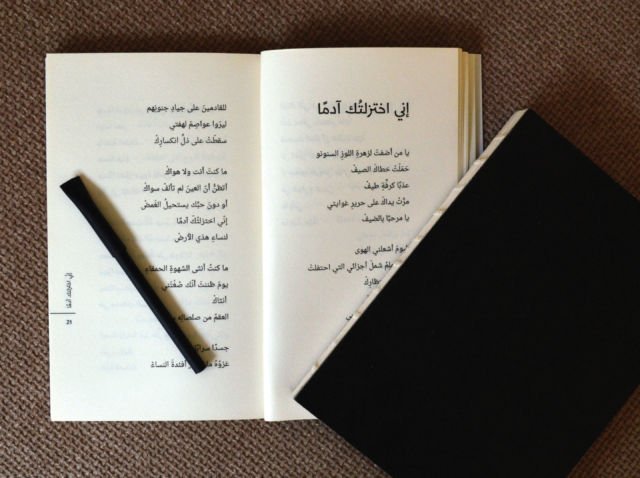 إني اختزلتُك آدمًا
يا من أضفتَ لزهرةِ اللوزِ السنونو
حَمَلَتْ خطاكَ الصيفَ
عذبًا كرفّةِ طيفْ
مرَّتْ يداكَ على حريرِ غوايتي
يا مرحبًا بالضيفْ
اليومُ أشعلني الهوى
شملَ أجزائي التي احتفلتْ
للقادمينَ على جيادِ جنونِهم
ليرَوا عواصِمَ لهفتي
سقطَتْ على ذلِّ انكسارِكْ
ما كنتُ أنت ولا هواكْ
أتظنُّ أنّ العينَ لم تألفْ سواكْ
أو دونَ حبِّك يستحيلُ الغمضُ
إنّي اختزلتُكَ آدمًا
لنساءِ هذي الأرضْ
ما كنتُ أنثى الشهوةِ الحمقاءِ
يومَ ظننتَ أنّكَ صُغتَني
أنثاكْ
العقمُ من صلصالِه
جسدًا
أفئدةَ النساءْ
إني اختزلتك آدمًا
21